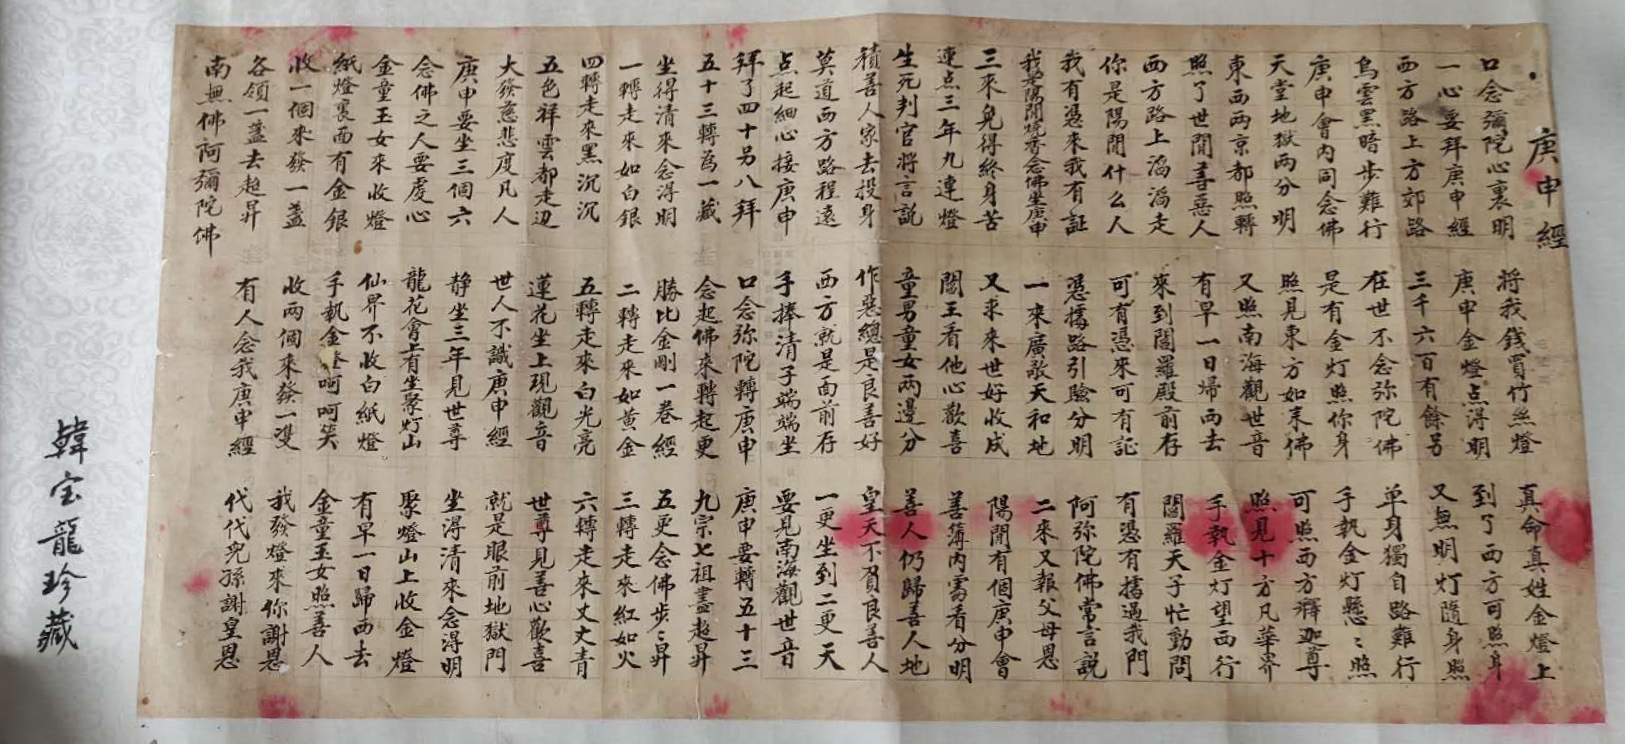 庚申經
口念彌陀心裏明 將我錢買竹絲燈 真命真姓金燈上
一心要拜庚申經 庚申金燈点得明 到了西方可照身
西方路上方郊路 三千六百有餘另 又無明灯隨身照
烏雲黑暗步難行 在世不念弥陀佛 单身獨自路難行
庚申會內同念佛 是有金灯照你身 手執金灯懸〻照
天堂地獄兩分明 照見東方如来佛 可照西方釋迦尊
東西兩京都照轉 又照南海觀世音 照見十方凡華界
照了世間善惡人 有早一日歸西去 手執金灯望西行
西方路上滔滔走 來到閻羅殿前存 閻羅天子忙動問
你是陽間什么人 可有憑來可有証 有憑有據過我門
我有憑來我有証 憑據路引驗分明 阿弥陀佛常言説
我陽間燒香念佛坐庚申 一來廣敬天和地 二來又報父母恩
三來免得終身苦 又求来世好收成 陽間有個庚申會
連点三年九連燈 閻王看他心歡喜 善簿内需看分明
生死判官將言説 童男童女兩邊分 善人仍歸善人地
積善人家去投身 作惡總是良善好 皇天不負良善人
莫道西方路程遠 西方就是面前存 一更坐到二更天
点起細心接庚申 手捧清子端端坐 要見南海觀世音
拜了四十另八拜 口念弥陀轉庚申 庚申要轉五十三
五十三轉為一藏 念起佛來轉起更 九宗七祖盡超昇
坐得清來念得明 勝比金剛一卷經 五更念佛步〻昇
一轉走來如白銀 二轉走來如黃金 三轉走來紅如火
四轉走來黑沉沉 五轉走來白光亮 六轉走來丈丈青
五色祥雲都走边 蓮花坐上現觀音 世尊見善心歡喜
大發慈悲度凡人 世人不識庚申經 就是眼前地獄門
庚申要坐三個六 静坐三年見世尊 坐得清來念得明
念佛之人要虔心 龍花會上有坐聚灯山 聚燈山上收金燈
金童玉女來收燈 仙界不收白紙燈 有早一日歸西去
紙燈裏面有金銀 手執金呵呵笑 金童玉女照善人
收一個來發一盞 收兩個來發一雙 我發燈來你謝恩
各領一盞去超昇 有人念我庚申經 代代兒孫謝皇恩
南無佛阿彌陀佛
韓宝龍珍藏